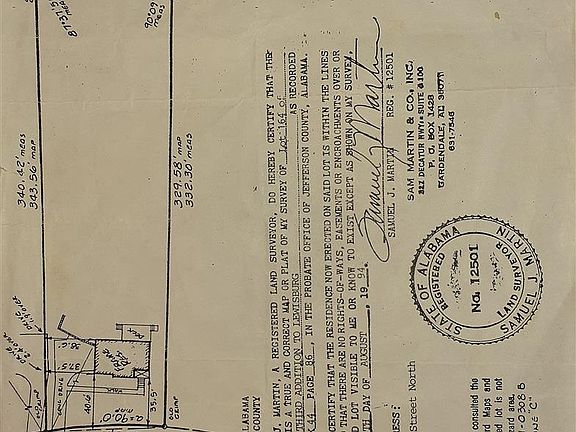 ALABAMA
COUNTY
J. MARTIN, A REGISTERED LAND SURVEYOR, DO HEREBY CERTIFY THAT THE
IS A TRUE AND CORRECT MAP OR PLAT OF MY SURVEY OF Lot 164 of
THIRD ADDITION TO LEWISBURG AS RECORDED
44 PAGE 86, IN THE PROBATE OFFICE OF JEFFERSON COUNTY, ALABAMA.
CERTIFY THAT THE RESIDENCE NOW ERECTED ON SAID LOT IS WITHIN THE LINES
THAT THERE ARE NO RIGHTS-OF-WAYS, EASEMENTS OR ENCROACHMENTS OVER OR
D LOT VISIBLE TO ME OR KNOW TO EXIST EXCEPT AS SHOWN ON MY SURVEY,
TH DAY OF AUGUST, 19 94.
Samuel J. Martin
SAMUEL J. MARTIN REG. #12501
SAM MARTIN & CO., INC.
P. O. BOX 1428
GARDENDALE, AL 35071
631-7546
ESS:
Street North
STATE OF ALABAMA
REGISTERED
No. 12501
LAND SURVEYOR
SAMUEL J. MARTIN
consulted the
d Maps and
d lot is not
ard area.
-0308 B
NE "C"
340.42' MEAS
343.56' MAP
329.58' MAP
332.30' MEAS
90°09'
MEAS
36.0'
37.5'
40.6'
35.5'
WALK
DECK
a=90.0'
MAP
OLD
CRIMP